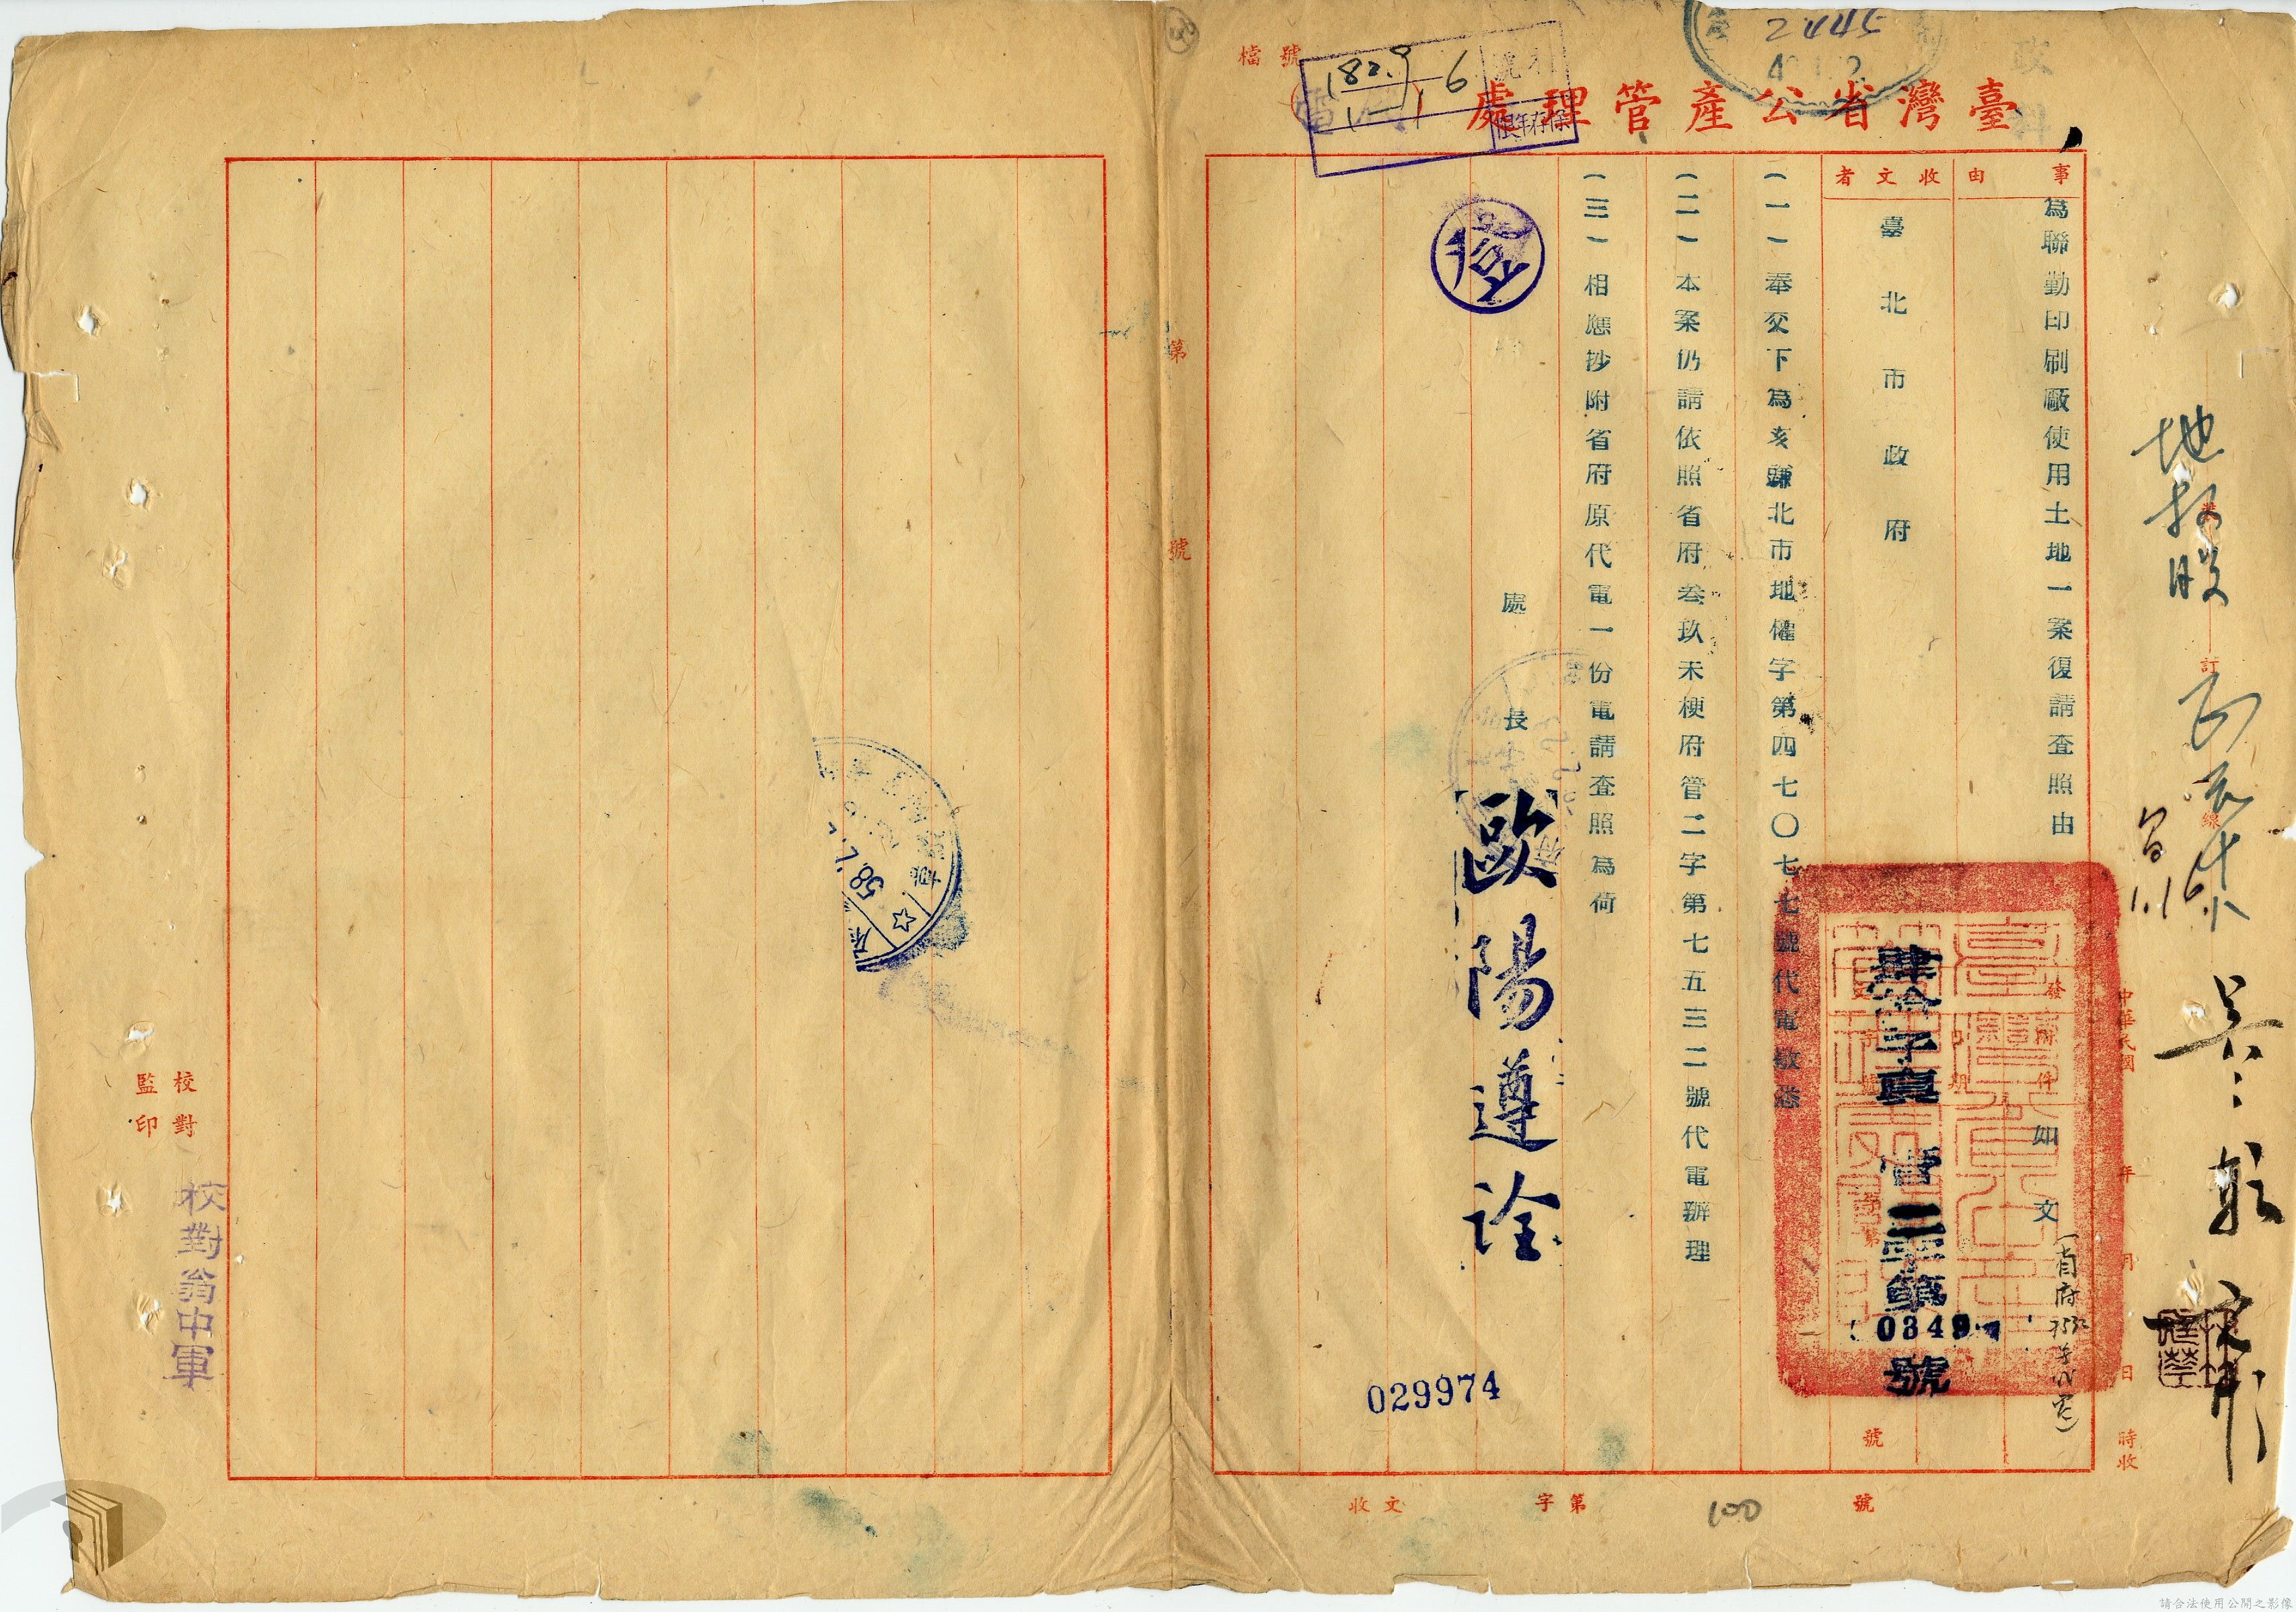 檔號
182.9
6
2445
臺灣省公產管理處
事由
為聯勤印刷廠使用土地一案復請查照由
附件
如文
收文者
臺北市政府
肆拾子真
管二字第
0349
號
(一)奉交下為亥鹽北市地權字第四七〇七七號代電敬悉
(二)本案仍請依照省府叁玖未梗府管二字第七五三二號代電辦理
(三)相應抄附省府原代電一份電請查照為荷
處長
歐陽遵詮
029974
收文
字第
號
100
第
號
裝
訂
線
中華民國
年
月
日
時收
地權股
1.16
校對
監印
校對翁中軍
58.1.
請合法使用公開之影像